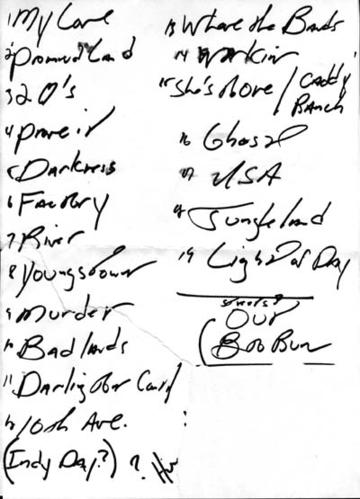 1 My Love
2 Promised Land
3 20's
4 prove it
5 Darkness
6 Factory
7 River
8 Youngstown
9 Murder
10 Badlands
11 Darlington Card
12 10th Ave.
(Indy Day?) ?
13 Where the Bands
14 Workin
15 She's the one / Caddy
Ranch
16 Ghost
17 USA
18 Jungleland
19 Light of Day
Our
(BobBun